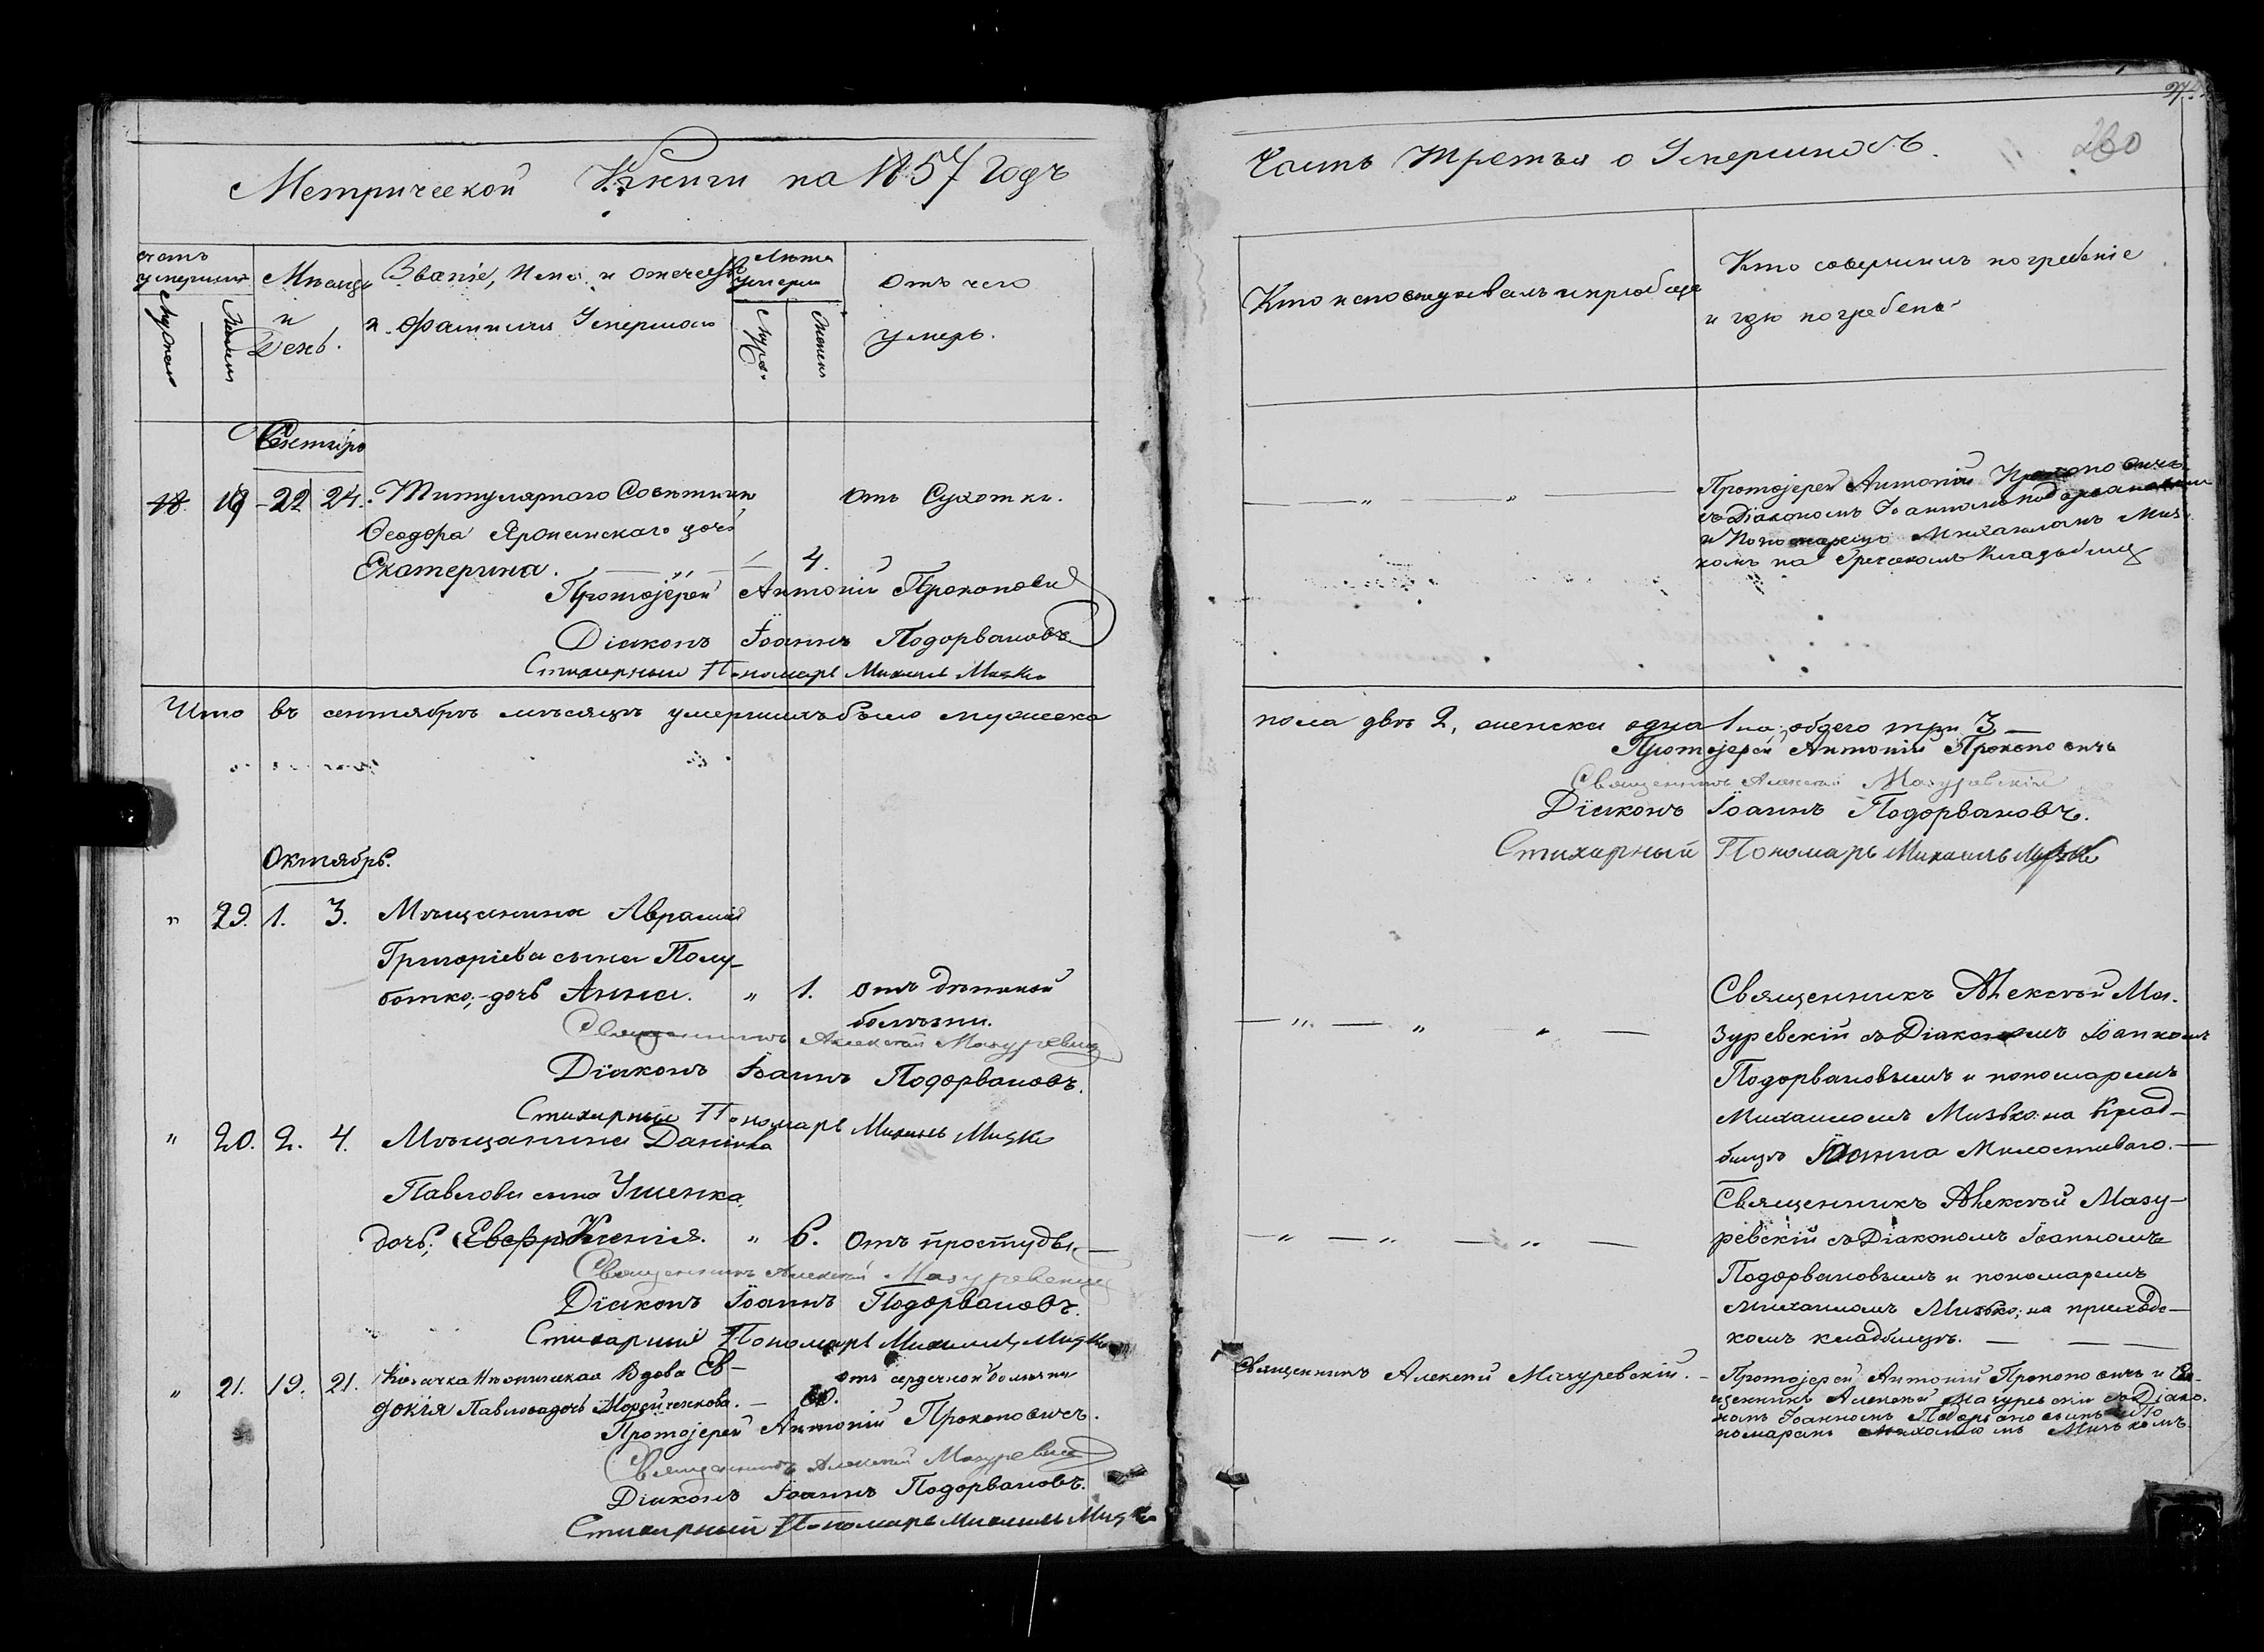 Метрической Книги на 1857 годъ
счетъ умершихъ
Мужеска
Женска
Мѣсяцъ
и
День.
Званіе, Имя и отчество
и фамилія Умершаго
Лѣта умерш
Муж.
Женск
Отъ чего
умеръ.
Сентябрь
18 19 22 24. Титулярнаго Совѣтника отъ Сухотки.
Ѳеодора Яронинскаго дочь
Екатерина. — „ — 4.
Протоіерей Антоній Прокопови
Діаконъ Іоаннъ Подорвановъ
Стихарный Пономарь Михаилъ Мизко
Что въ сентябрѣ мѣсяцѣ умершихъ было мужеска
Октябрь.
„ 29. 1. 3. Мѣщанина Аврамія
Григоріева сына Полу-
ботко; дочь Анна. „ 1. отъ дѣтской
болѣзни.
Священникъ Алексѣй Мазуревскій
Діаконъ Іоаннъ Подорвановъ.
Стихарный Пономарь Михаилъ Мизко
„ 20. 2. 4. Мѣщанина Даніила
Павлова сына Ушенка,
дочь; (Евфр) Ксенія. „ 6. Отъ простуды. —
Священникъ Алексѣй Мазуревскій
Діаконъ Іоаннъ Подорвановъ.
Стихарный Пономарь Михаилъ Мизко
„ 21. 19. 21. Козачка Вдова Ев- отъ сердечной болѣзни
докія Павлова дочь —
Протоіерей Антоній Прокоповичъ.
Священникъ Алексѣй Мазуревскій
Діаконъ Іоаннъ Подорвановъ.
Стихарный Пономарь Михаилъ Мизко
Часть Третья о Умершихъ.
260
Кто исповѣдывалъ и пріобща
Кто совершилъ погребеніе
и гдѣ погребенъ
— „ — „ — Протоіерей Антоній Прокоповичъ
съ Діакономъ Іоанномъ Подорвановым
и Пономаремъ Михаиломъ Миз
комъ на Греческомъ Кладбищѣ
пола двѣ 2, женска одна 1 на, обоего три 3 —
Протоіерей Антоній Прокоповичъ
Священникъ Алексѣй Мазуревскій
Діаконъ Іоаннъ Подорвановъ.
Стихарный Пономарь Михаилъ Мизко
Священникъ Алексѣй Ма-
— „ — „ „ — зуревскій съ Діакономъ Іоанномъ
Подорвановымъ и пономаремъ
Михаиломъ Мизько: на Клад-
бищѣ Іоанна Милостиваго. —
Священникъ Алексѣй Мазу-
— „ — „ — „ — ревскій съ Діакономъ Іоанномъ
Подорвановымъ и пономаремъ
Михаиломъ Мизько; на приходс-
комъ кладбищѣ. — — —
Священникъ Алексѣй Мазуревскій. — Протоіерей Антоній Прокоповичъ и Свя-
щенникъ Алексѣй Мазуревскій съ Діако-
номъ Іоанномъ Подорвановымъ и По
номаремъ Михаиломъ Мизькомъ.